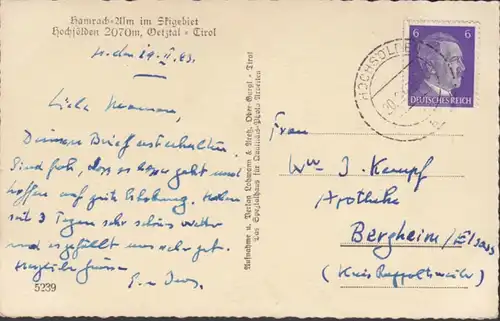 Hamrach-Alm im Skigebiet
Hochsölden 2070m, Oetztal - Tirol
den 19. II. 43.
Liebe
Deinen Brief erhalten.
Sind froh, dass es besser geht und
hoffen auf gute Erholung. Haben
seit 3 Tagen sehr schönes Wetter
und es gefällt uns sehr gut.
Herzliche Grüsse
5239
Aufnahme u. Verlag Lohmann & Aretz, Ober-Gurgl - Tirol
Das Spezialhaus für Dauernde Photo-Arbeiten
6 6
DEUTSCHES REICH
HOCHSÖLDEN
20.
Frau
Ww J. Kempf
Apotheke
Bergheim/Elsass
(Kreis Rappoltsweiler)